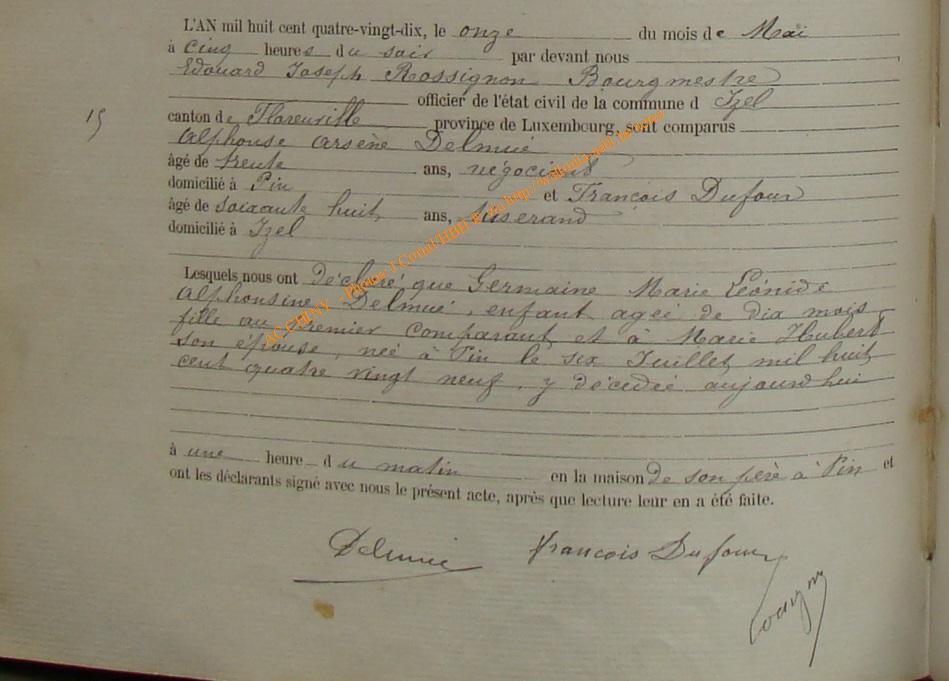 L'AN mil huit cent quatre-vingt-dix, le onze du mois de Mai
à cinq heures du soir par devant nous
Edouard Joseph Rossignon Bourgmestre
officier de l'état civil de la commune d Izel
15 canton de Florenville province de Luxembourg, sont comparus
Alphonse Arsène Delmué
âgé de trente ans, négociant
domicilié à Pin et François Dufour
âgé de soixante huit ans, tisserand
domicilié à Izel
Lesquels nous ont déclaré que Germaine Marie Léonide
Alphonsine Delmué, enfant agée de dix mois,
fille au premier comparant et à Marie Hubert
son épouse, née à Pin le six Juillet mil huit
cent quatre vingt neuf, y décédée aujourd'hui
à une heure du matin en la maison de son père à Pin et
ont les déclarants signé avec nous le présent acte, après que lecture leur en a été faite.
Delmué François Dufour